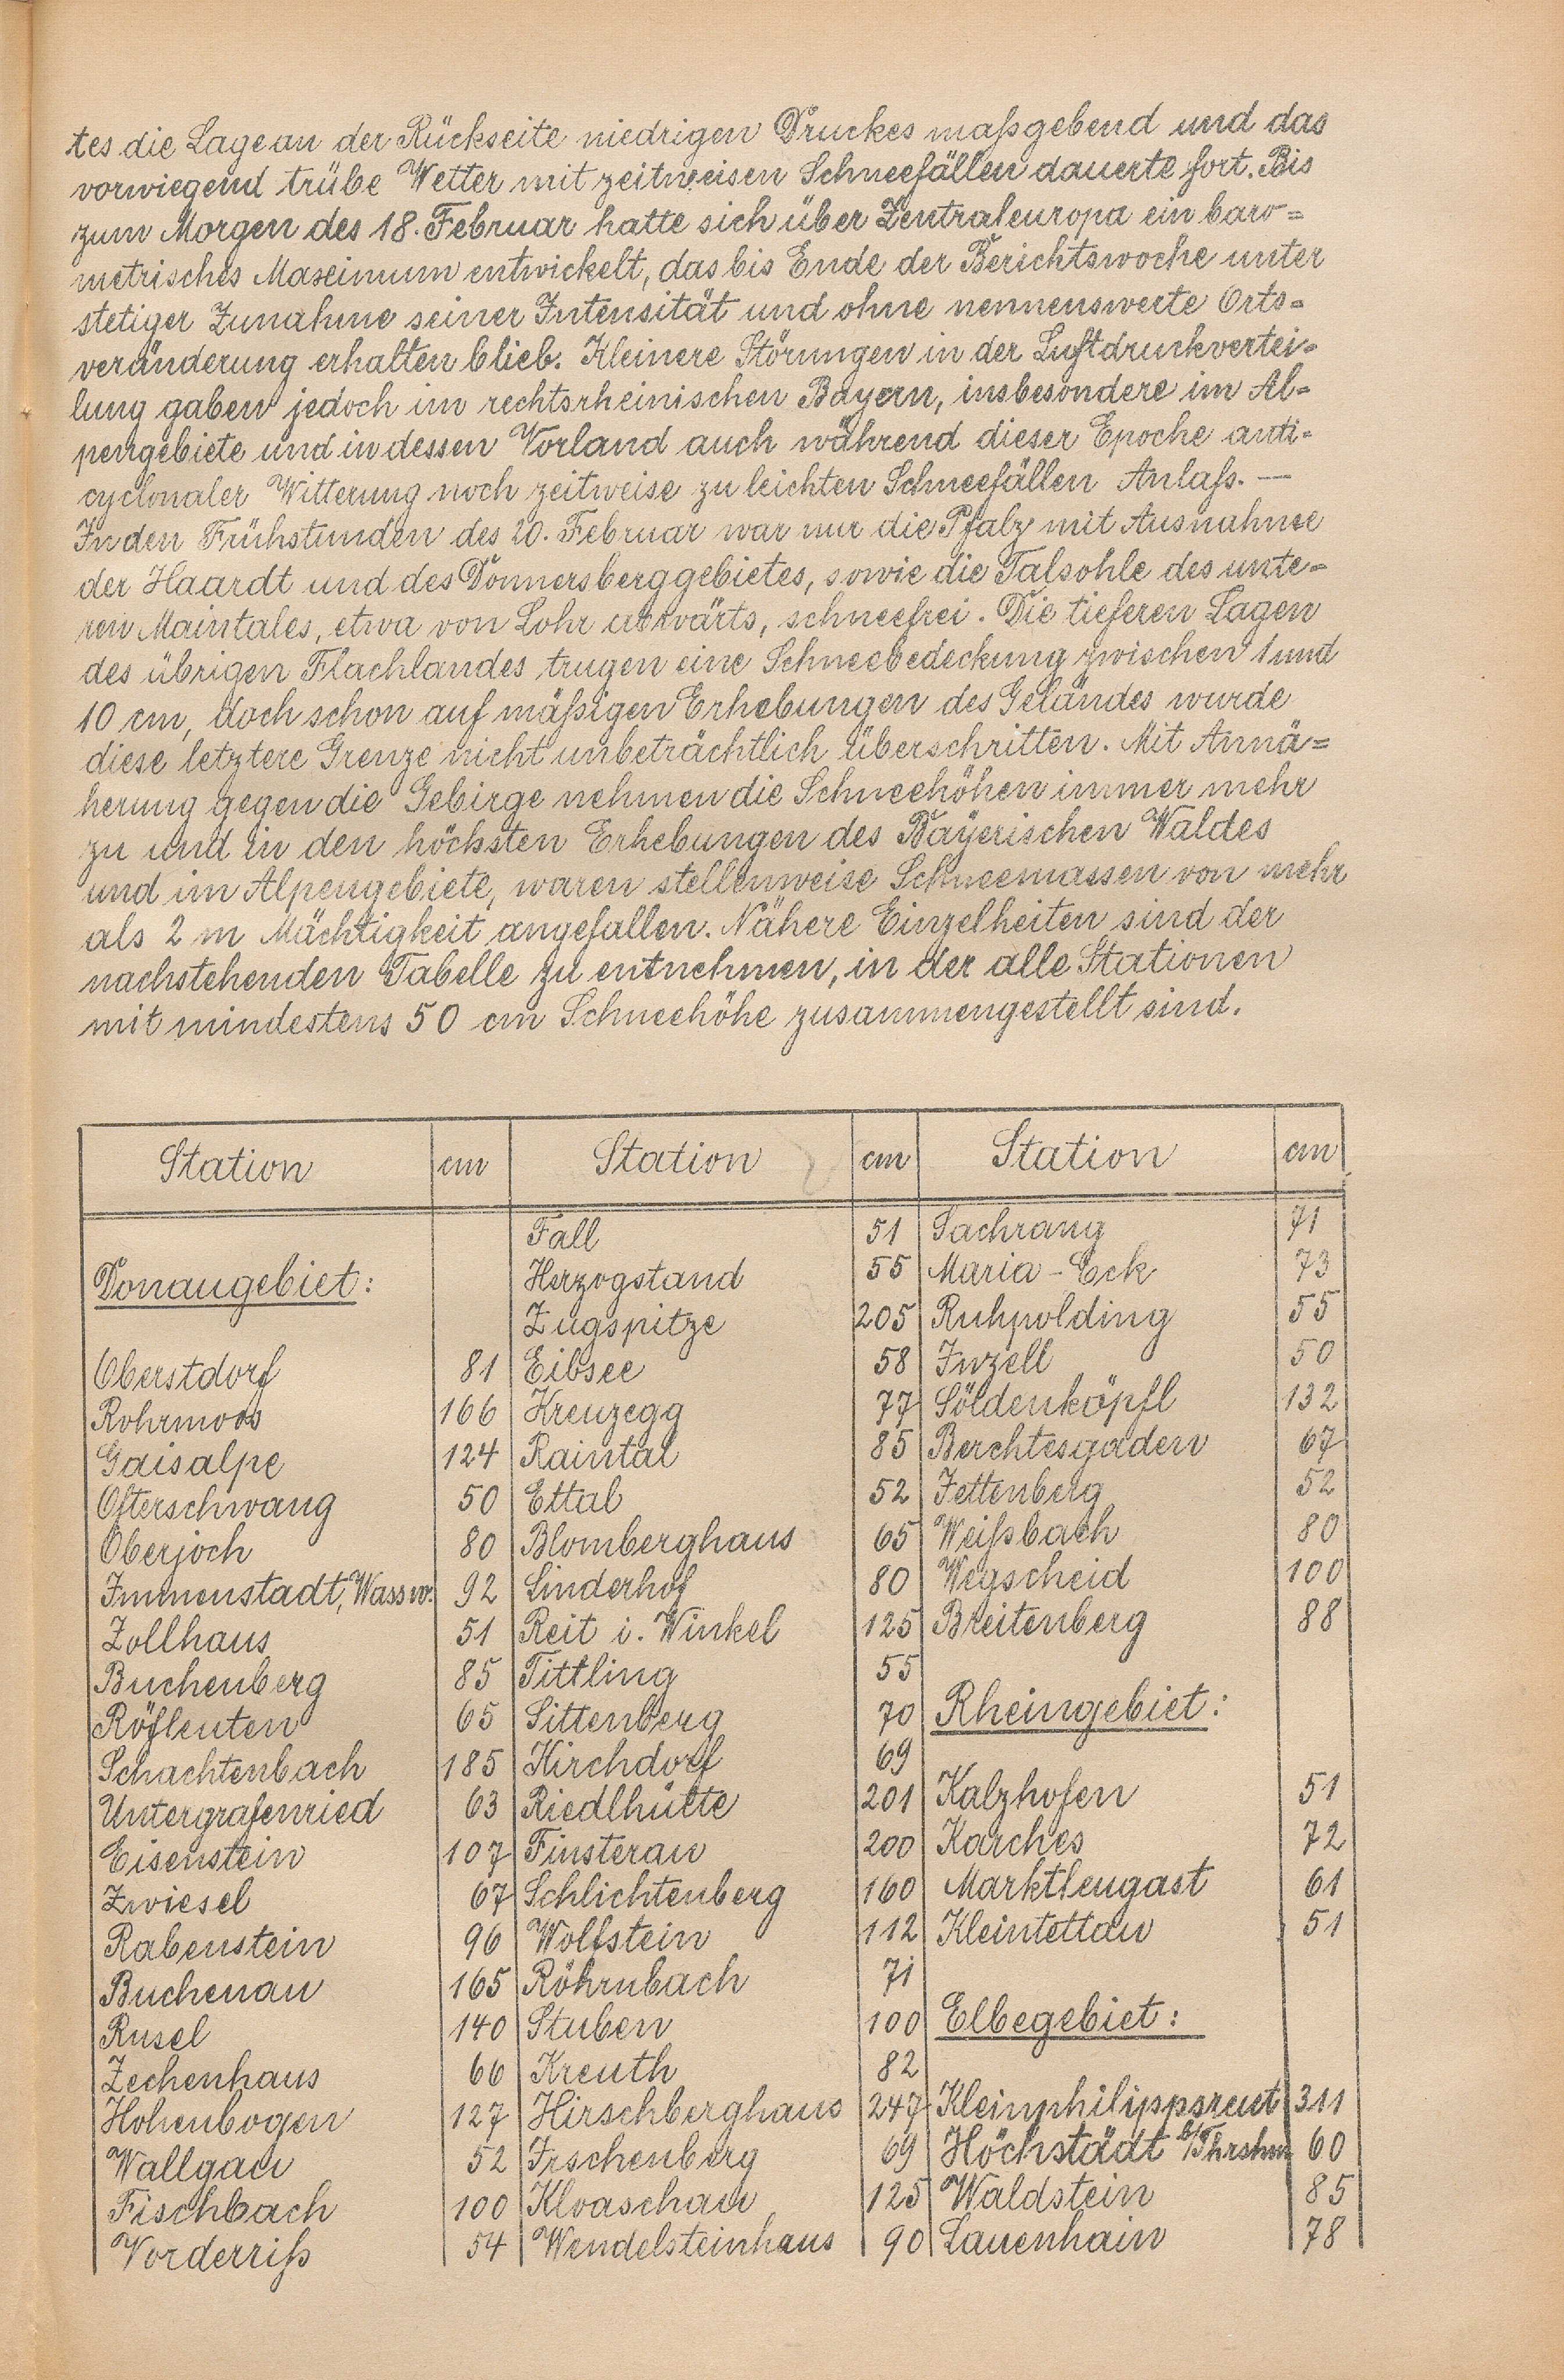 tes die Lage an der Rückseite niedrigen Druckes maßgebend und das
vorwiegend trübe Wetter mit zeitweisen Schneefällen dauerte fort. Bis
zum Morgen des 18. Februar hatte sich über Zentraleuropa ein baro=
metrisches Maximum entwickelt, das bis Ende der Berichtswoche unter
stetiger Zunahme seiner Intensität und ohne nennenswerte Orts=
veränderung erhalten blieb. Kleinere Störungen in der Luftdruckvertei=
lung gaben jedoch im rechtsrheinischen Bayern, insbesondere im Al=
pengebiete und in dessen Vorland auch während dieser Epoche anti=
cyclonaler Witterung noch zeitweise zu leichten Schneefällen Anlaß. —
In den Frühstunden des 20. Februar war nur die Pfalz mit Ausnahme
der Haardt und des Donnersberggebietes, sowie die Talsohle des unte=
ren Maintales, etwa von Lohr abwärts, schneefrei. Die tieferen Lagen
des übrigen Flachlandes trugen eine Schneebedeckung zwischen 1 und
10 cm, doch schon auf mäßigen Erhebungen des Geländes wurde
diese letztere Grenze nicht unbeträchtlich überschritten. Mit Annä=
herung gegen die Gebirge nehmen die Schneehöhen immer mehr
zu und in den höchsten Erhebungen des Bayerischen Waldes
und im Alpengebiete, waren stellenweise Schneemassen von mehr
als 2 m Mächtigkeit angefallen. Nähere Einzelheiten sind der
nachstehenden Tabelle zu entnehmen, in der alle Stationen
mit mindestens 50 cm Schneehöhe zusammengestellt sind.
Station cm Station cm Station cm
Donaugebiet:
Oberstdorf 81
Rohrmoos 166
Gaisalpe 124
Ofterschwang 50
Oberjoch 80
Immenstadt, Wassw. 92
Zollhaus 51
Buchenberg 85
Röfleuten 65
Schachtenbach 185
Untergrafenried 63
Eisenstein 107
Zwiesel 67
Rabenstein 96
Buchenau 165
Rusel 140
Zechenhaus 66
Hohenbogen 127
Wallgau 52
Fischbach 100
Vorderriß 54
Fall 51
Herzogstand 55
Zugspitze 205
Eibsee 58
Kreuzegg 77
Raintal 85
Ettal 52
Blomberghaus 65
Linderhof 80
Reit i. Winkel 125
Tittling 55
Sittenberg 70
Kirchdorf 69
Riedlhütte 201
Finsterau 200
Schlichtenberg 160
Wolfstein 112
Röhrnbach 71
Stuben 100
Kreuth 82
Hirschberghaus 247
Irschenberg 69
Kloaschau 125
Wendelsteinhaus 90
Sachrang 71
Maria-Eck 73
Ruhpolding 55
Inzell 50
Söldenköpfl 132
Berchtesgaden 67
Jettenberg 52
Weißbach 80
Wegscheid 100
Breitenberg 88
Rheingebiet:
Kalzhofen 51
Karches 72
Marktleugast 61
Kleintettau 51
Elbegebiet:
Kleinphilippsreut 311
Höchstädt b/Thrshm 60
Waldstein 85
Lauenhain 78